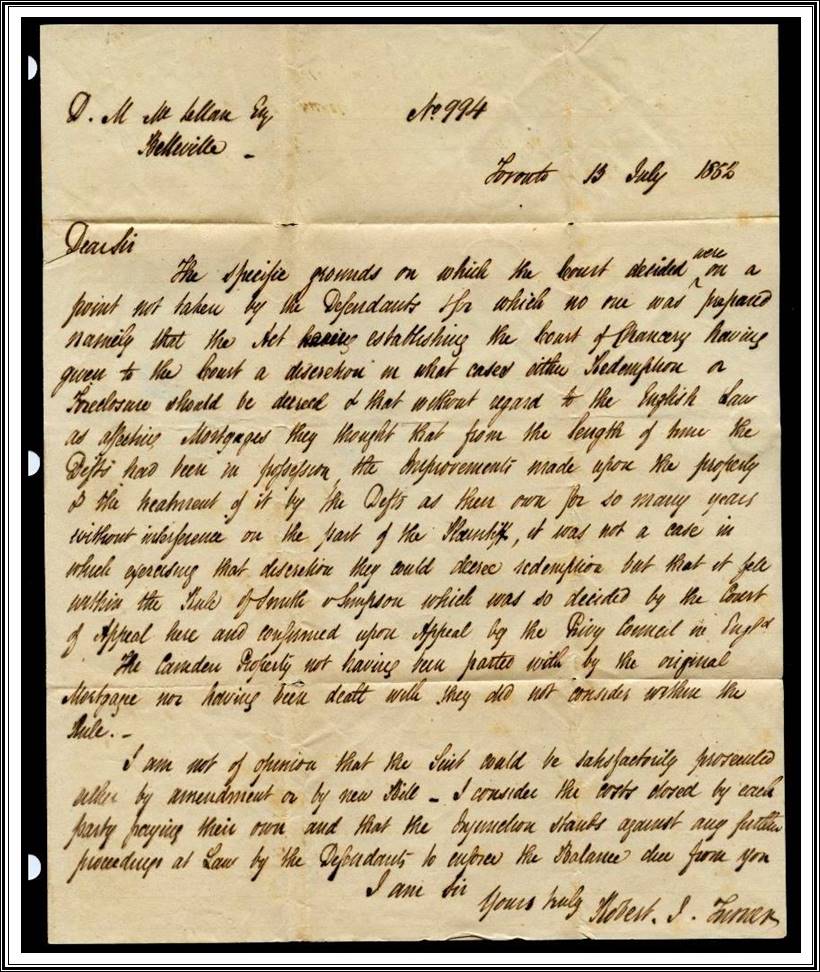 D. M Mc Lellan Esq
No 994
Belleville -
Toronto 13 July 1852
Dear Sir
The specific grounds on which the Court decided were on a
point not taken by the Defendants & for which no one was prepared
namely that the Act having establishing the Court of Chancery having
given to the Court a discretion in what cases either Redemption or
Foreclosure should be decreed & that without regard to the English Law
as affecting Mortgages they thought that from the length of time the
Defts had been in possession, the Improvements made upon the property
& the treatment of it by the Defts as their own for so many years
without interference on the part of the Plaintiff, it was not a case in
which exercising that discretion they could decree redemption but that it fell
within the Rule of Smith v Simpson which was so decided by the Court
of Appeal here and confirmed upon Appeal by the Privy Council in Engld
The Camden Property not having been parted with by the original
Mortgagee nor having been dealt with they did not consider within the
Rule. -
I am not of opinion that the Suit could be satisfactorily prosecuted
either by amendment or by new Bill - I consider the costs closed by each
party paying their own and that the Injunction stands against any further
proceedings at Law by the Defendants to enforce the Balance due from you
I am Sir
Yours truly Robert. J. Turner